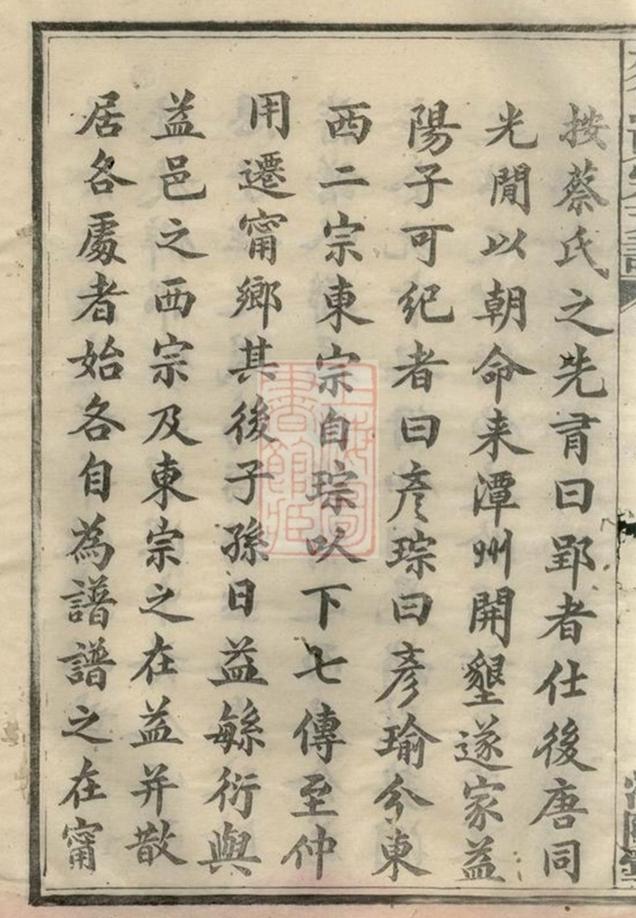 按蔡氏之先有曰郢者仕後唐同
光閒以朝命来潭州開墾遂家益
陽子可紀者曰彥琮曰彥瑜分東
西二宗東宗自琮以下七傳至仲
用遷甯鄉其後子孫日益緐衍與
益邑之西宗及東宗之在益并散
居各處者始各自為譜譜之在甯
上海圖
書館藏